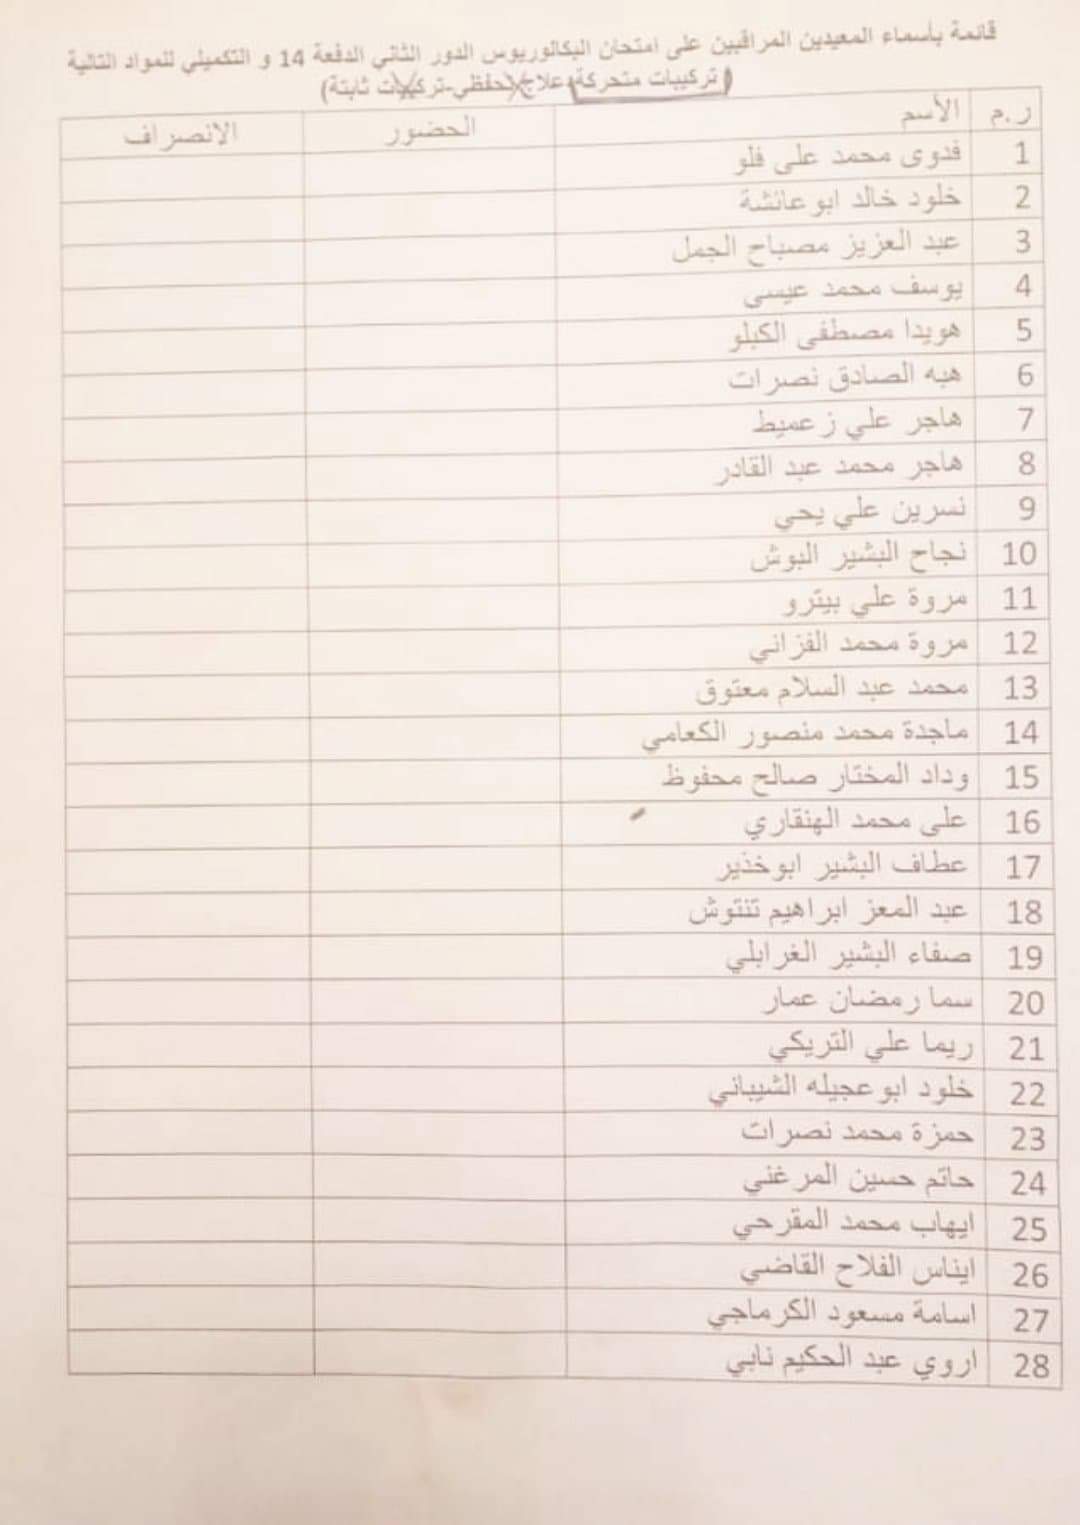 قائمة بأسماء المعيدين المراقبين على امتحان البكالوريوس الدور الثاني الدفعة 14 و التكميلي للمواد التالية
( تركيبات متحركة-علاج تحفظي-تركيبات ثابتة)
ر.م الأسم الحضور الانصراف
1 فدوى محمد على فلو
2 خلود خالد ابوعائشة
3 عبد العزيز مصباح الجمل
4 يوسف محمد عيسى
5 هويدا مصطفى الكيلو
6 هبه الصادق نصرات
7 هاجر علي زعميط
8 هاجر محمد عبد القادر
9 نسرين علي يحي
10 نجاح البشير البوش
11 مروة علي بيترو
12 مروة محمد الفزاني
13 محمد عبد السلام معتوق
14 ماجدة محمد منصور الكعامي
15 وداد المختار صالح محفوظ
16 على محمد الهنقاري
17 عطاف البشير ابوخذير
18 عبد المعز ابراهيم تنتوش
19 صفاء البشير الغرابلي
20 سما رمضان عمار
21 ريما علي التريكي
22 خلود ابوعجيله الشيباني
23 حمزة محمد نصرات
24 حاتم حسين المرغني
25 ايهاب محمد المقرحي
26 ايناس الفلاح القاضي
27 اسامة مسعود الكرماجي
28 اروي عبد الحكيم نابي